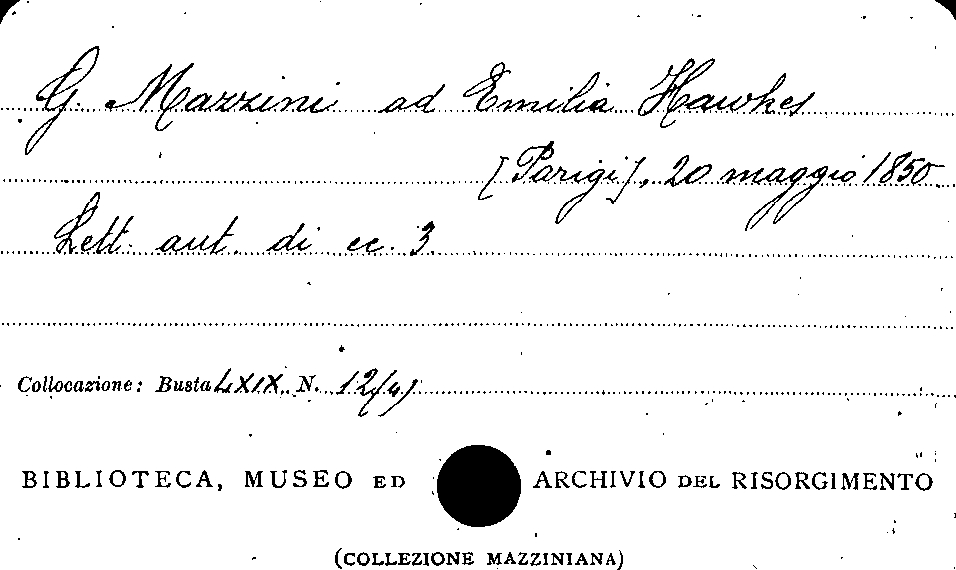 G. Mazzini ad Emilia Hawkes
[Parigi], 20 maggio 1850
Lett. aut. di cc. 3.
Collocazione: Busta LXIX N. 12(4)
BIBLIOTECA, MUSEO ED ARCHIVIO DEL RISORGIMENTO
(COLLEZIONE MAZZINIANA)